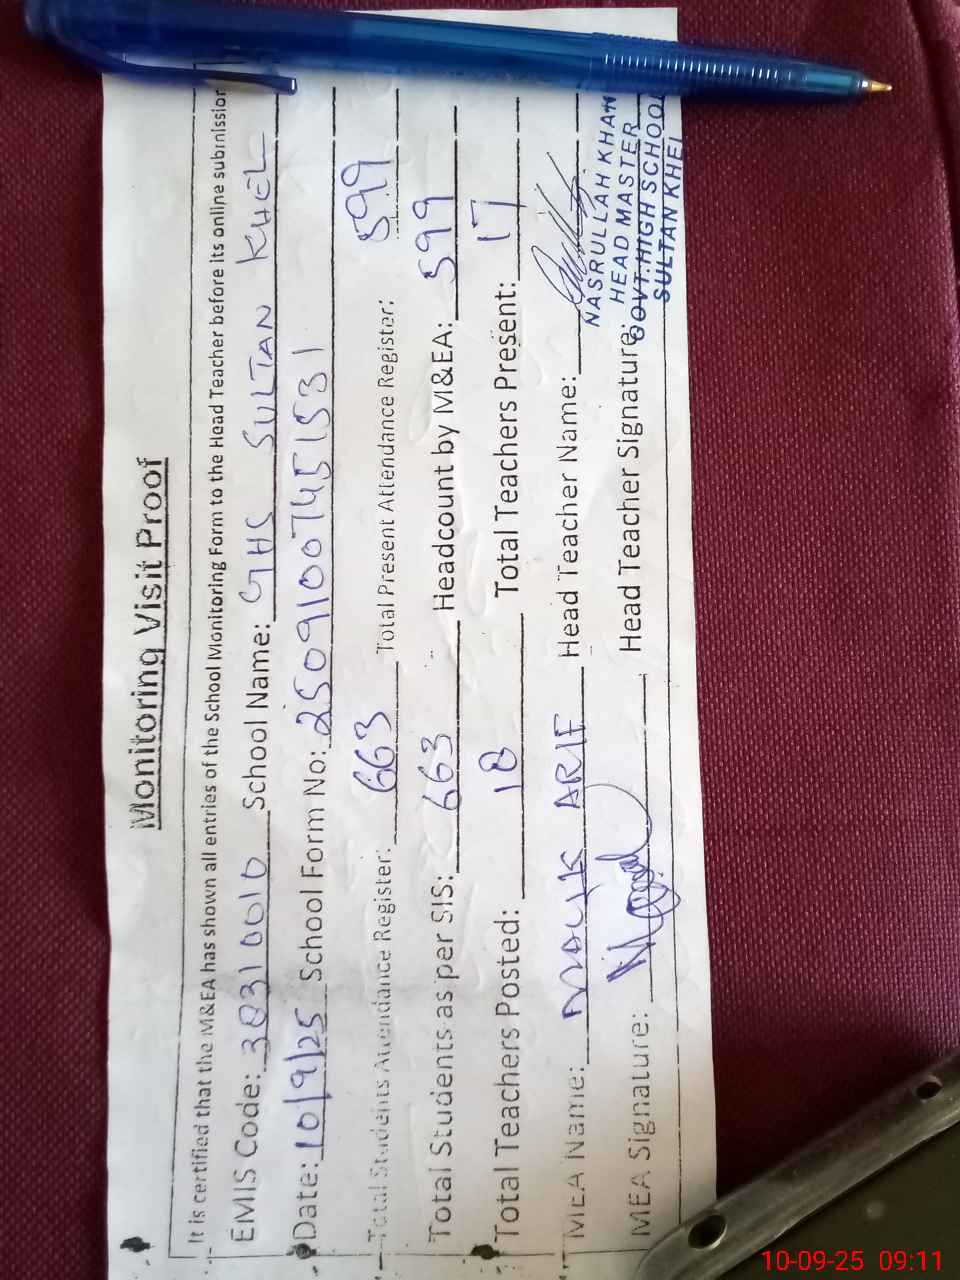 Monitoring Visit Proof
It is certified that the M&EA has shown all entries of the School Monitoring Form to the Head Teacher before its online submission
EMIS Code: 38310010 School Name: GHS SULTAN KHEL
Date: 10/9/25 School Form No: 25091007451531
Total Students Attendance Register: 663 Total Present Attendance Register: 599
Total Students as per SIS: 663 Headcount by M&EA: 599
Total Teachers Posted: 18 Total Teachers Present: 17
MEA Name: MALIK ARIF Head Teacher Name:
MEA Signature: Head Teacher Signature:
NASRULLAH KHAN
HEAD MASTER
GOVT.HIGH SCHOOL
SULTAN KHEL
10-09-25 09:11